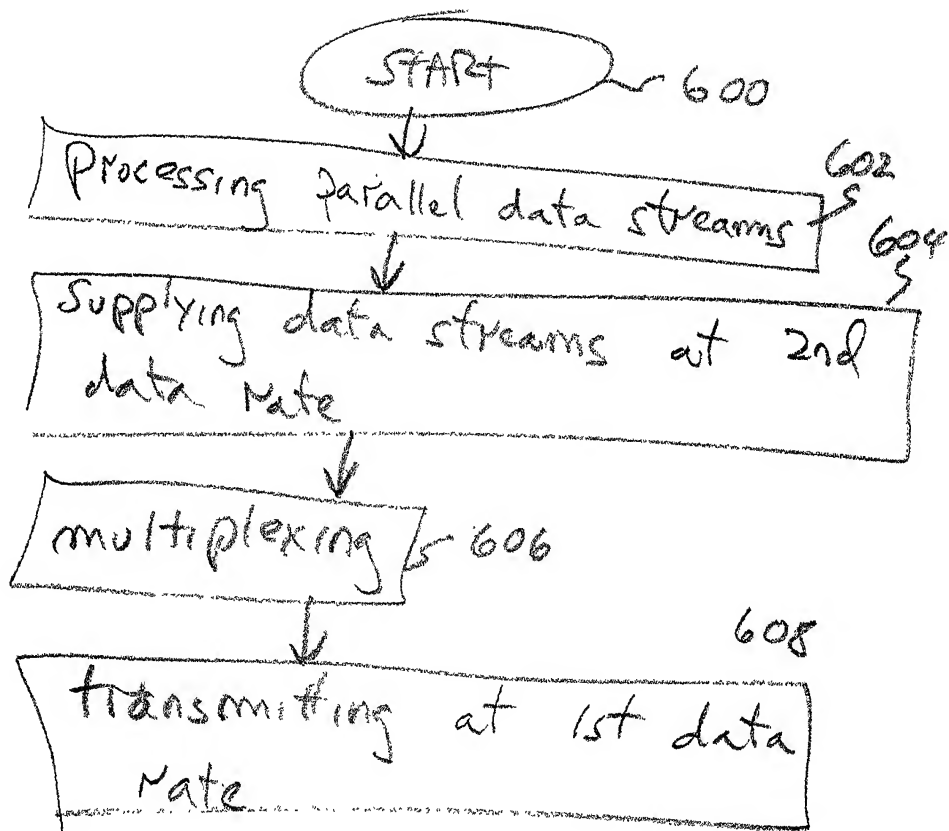 START
600
Processing parallel data streams
602
604
Supplying data streams at 2nd
data rate
multiplexing
606
608
transmitting at 1st data
rate